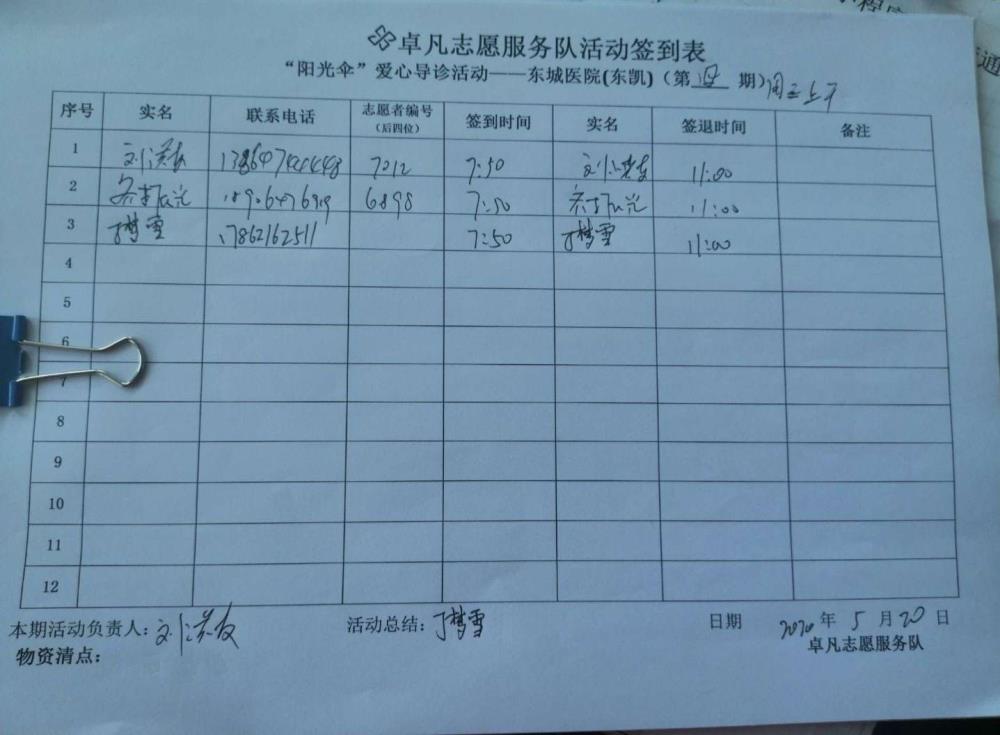 卓凡志愿服务队活动签到表
“阳光伞”爱心导诊活动——东城医院(东凯)（第 期）周三上午
序号 实名 联系电话 志愿者编号（后四位） 签到时间 实名 签退时间 备注
1 刘洪友 13864744448 7012 7:50 刘洪友 11:00
2 6898 7:50 11:00
3 丁梦雪 17862162511 7:50 丁梦雪 11:00
4
5
6
7
8
9
10
11
12
本期活动负责人：刘洪友 活动总结：丁梦雪 日期 2020年5月20日
物资清点： 卓凡志愿服务队
通